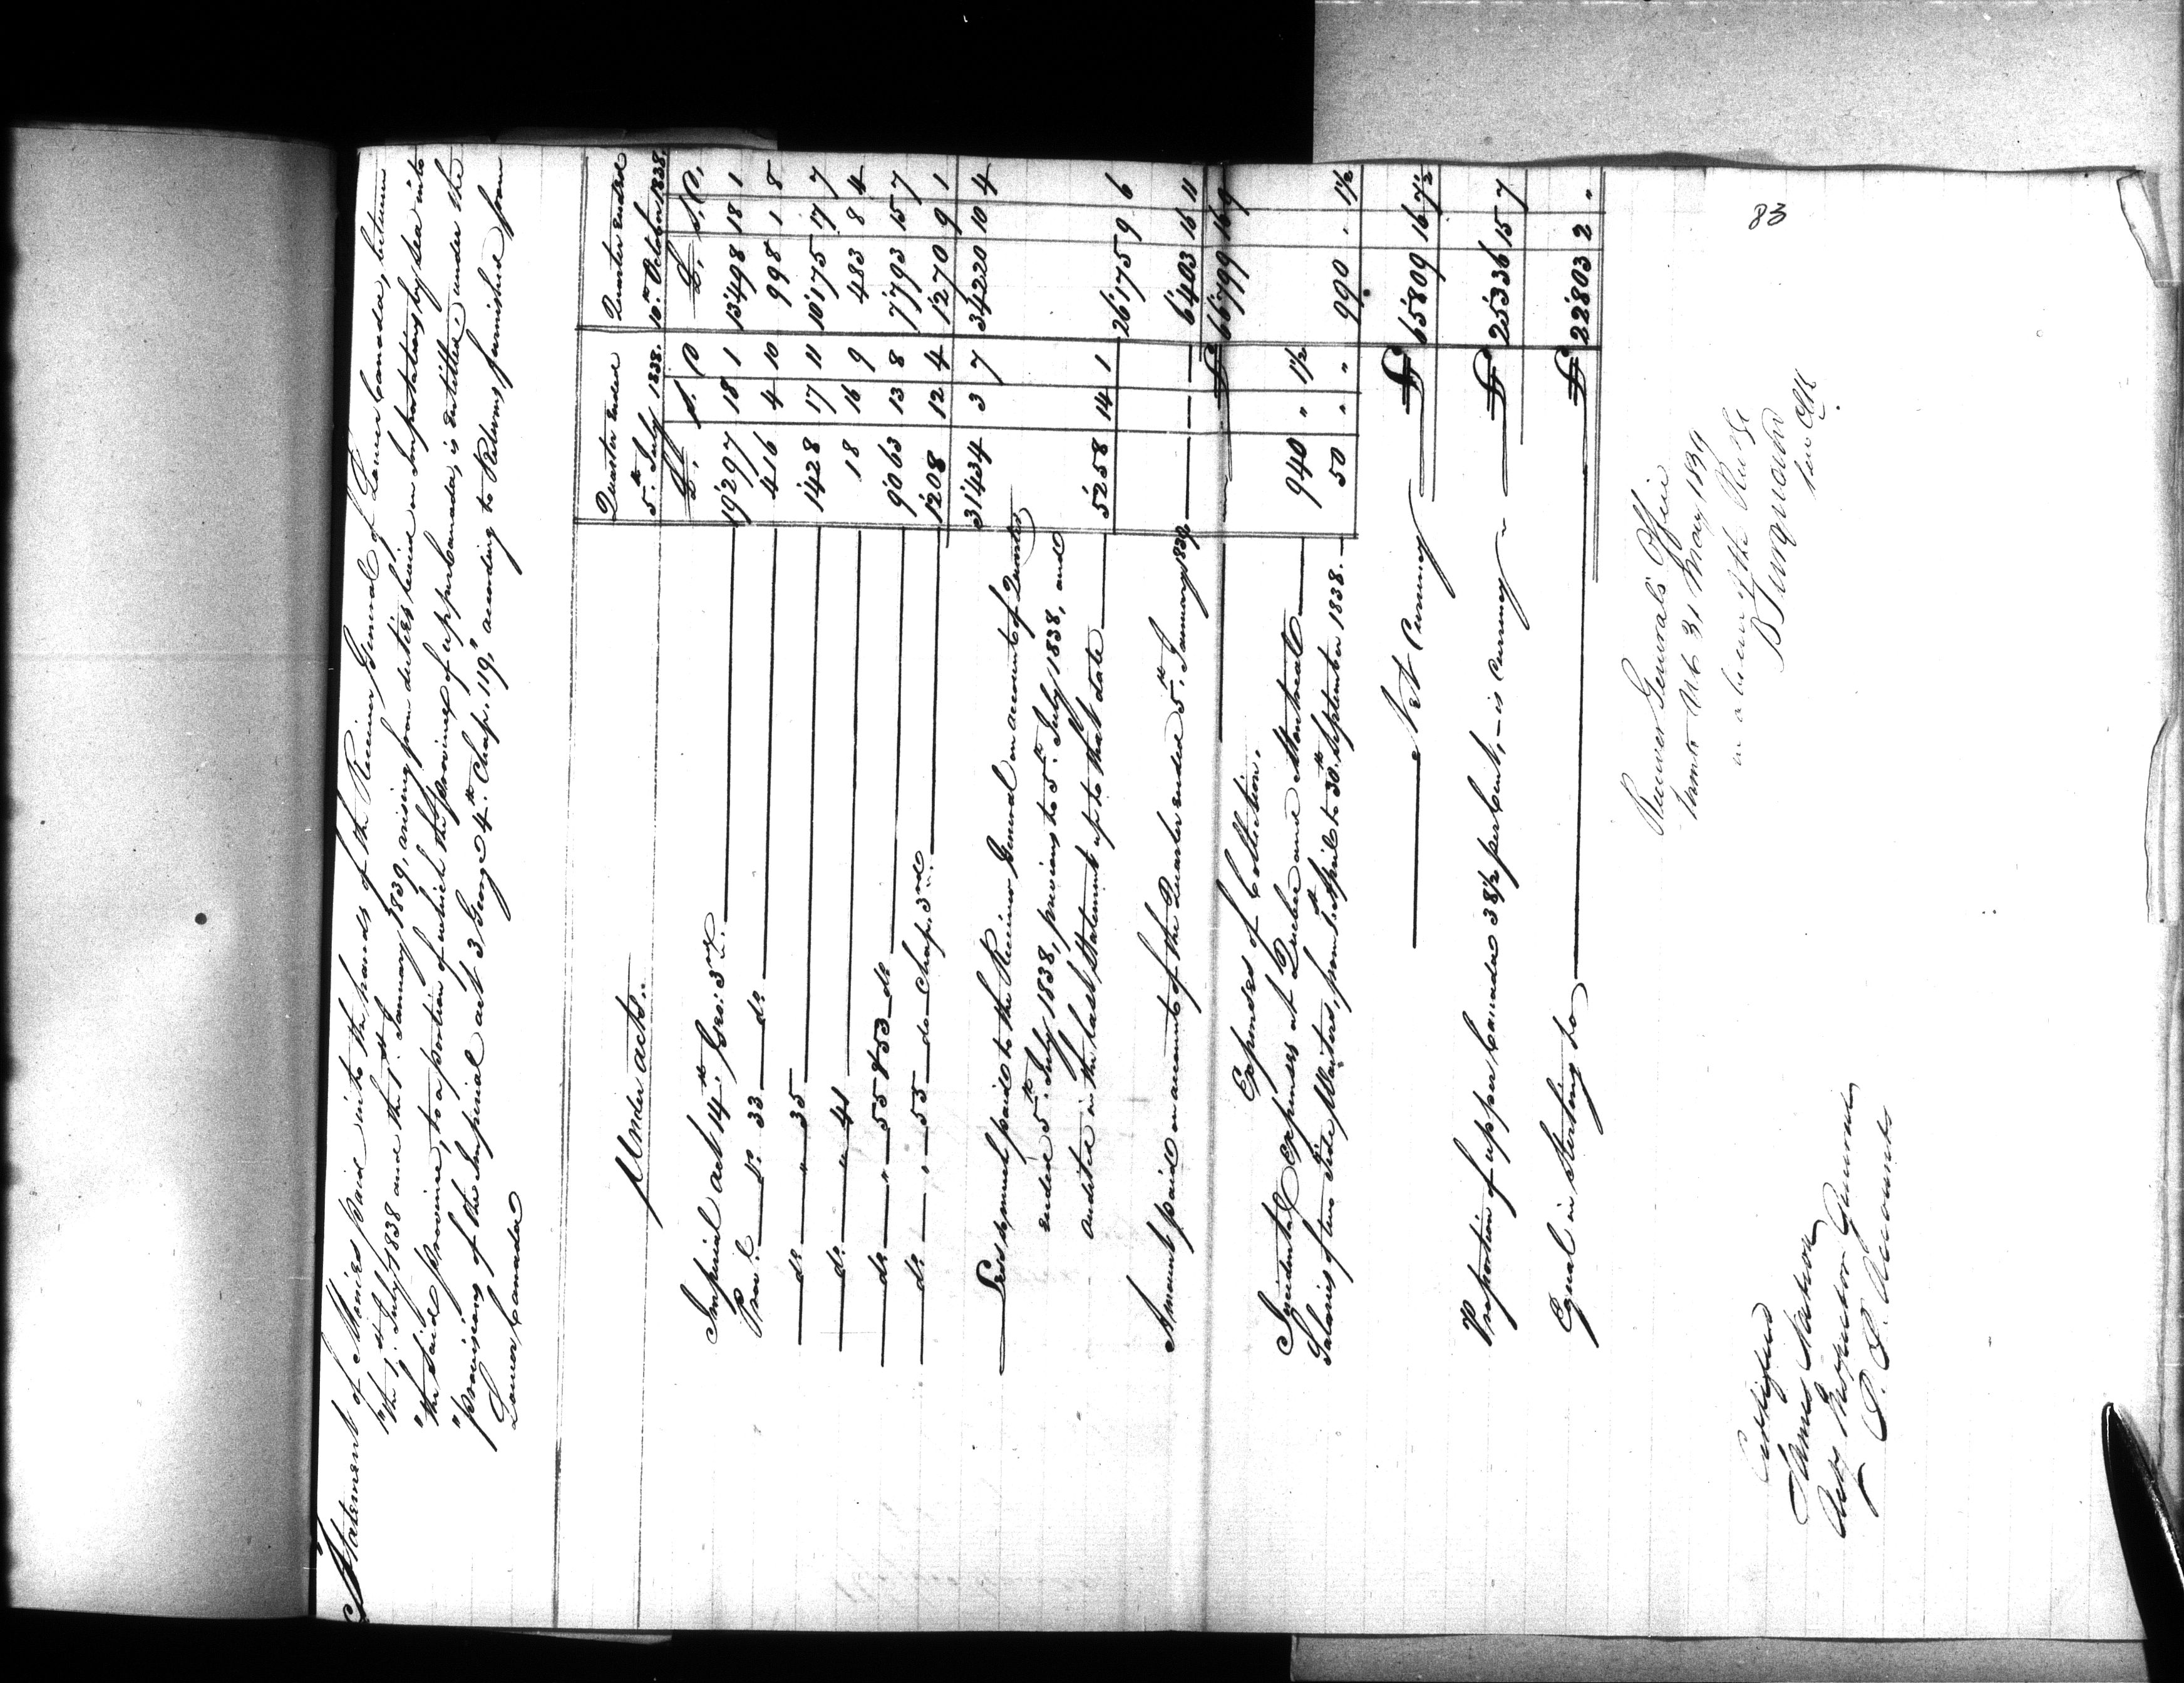 Statement of Monies paid into the hands of the Receiver General of Lower Canada, between
"the 1st July 1838 and the 1st January 1839, arising from duties levied on Importations by sea into
"the said province, to a portion of which the province of upper Canada, is entitled under the
"provisions of the Imperial act 3 George 4th Chap. 119," according to Returns furnished from
Lower Canada
Under acts.. Quarter ended 5th July 1838. Quarter ended 10th October 1838.
£. S. D £, s, D,
Imperial act 14th Geo: 3rd. 19'297 18 1 13'498 18 1
Prov.l do. 33 do. 416 4 10 998 1 8
do. " 35 1'428 17 11 10'175 17 7
do. " 41 18 16 9 483 8 4
do. " 55 & 53 do. 9'063 13 8 7'793 15 7
do. " 55 do Chap. 3rd. 1'208 12 4 1'270 9 1
31'434 3 7 34220 10 4
Less so much paid to the Receiver General on account of Quarter
ended 5th July 1838, previous to 5th July 1838, and
audited in the last Statement up to that date 5'258 14 1 26'175 9 6
Amount paid on account of the Quarter ended 5th January 1839 6'403 16 11
£ 66'799 16 9
Expenses of Collection.
Incidental Expenses at Quebec and Montreal 940 " 1½
Salaries of two Tide Waiters, from 1st April to 30th September 1838. 50 " " 990 . 1½
Net Currency £ 65'809 16 7½
Proportion of upper Canada 38½ per Cent, – is Currency £ 25'336 15 7
Equal in Sterling to £ 22'803 2 "
Receiver General's Office
Toronto U.C. 31 May 1839
in absence of the Rec Gl
B Turquand
Certified
James Nation
Acty Inspector General
P. P. Accounts
83